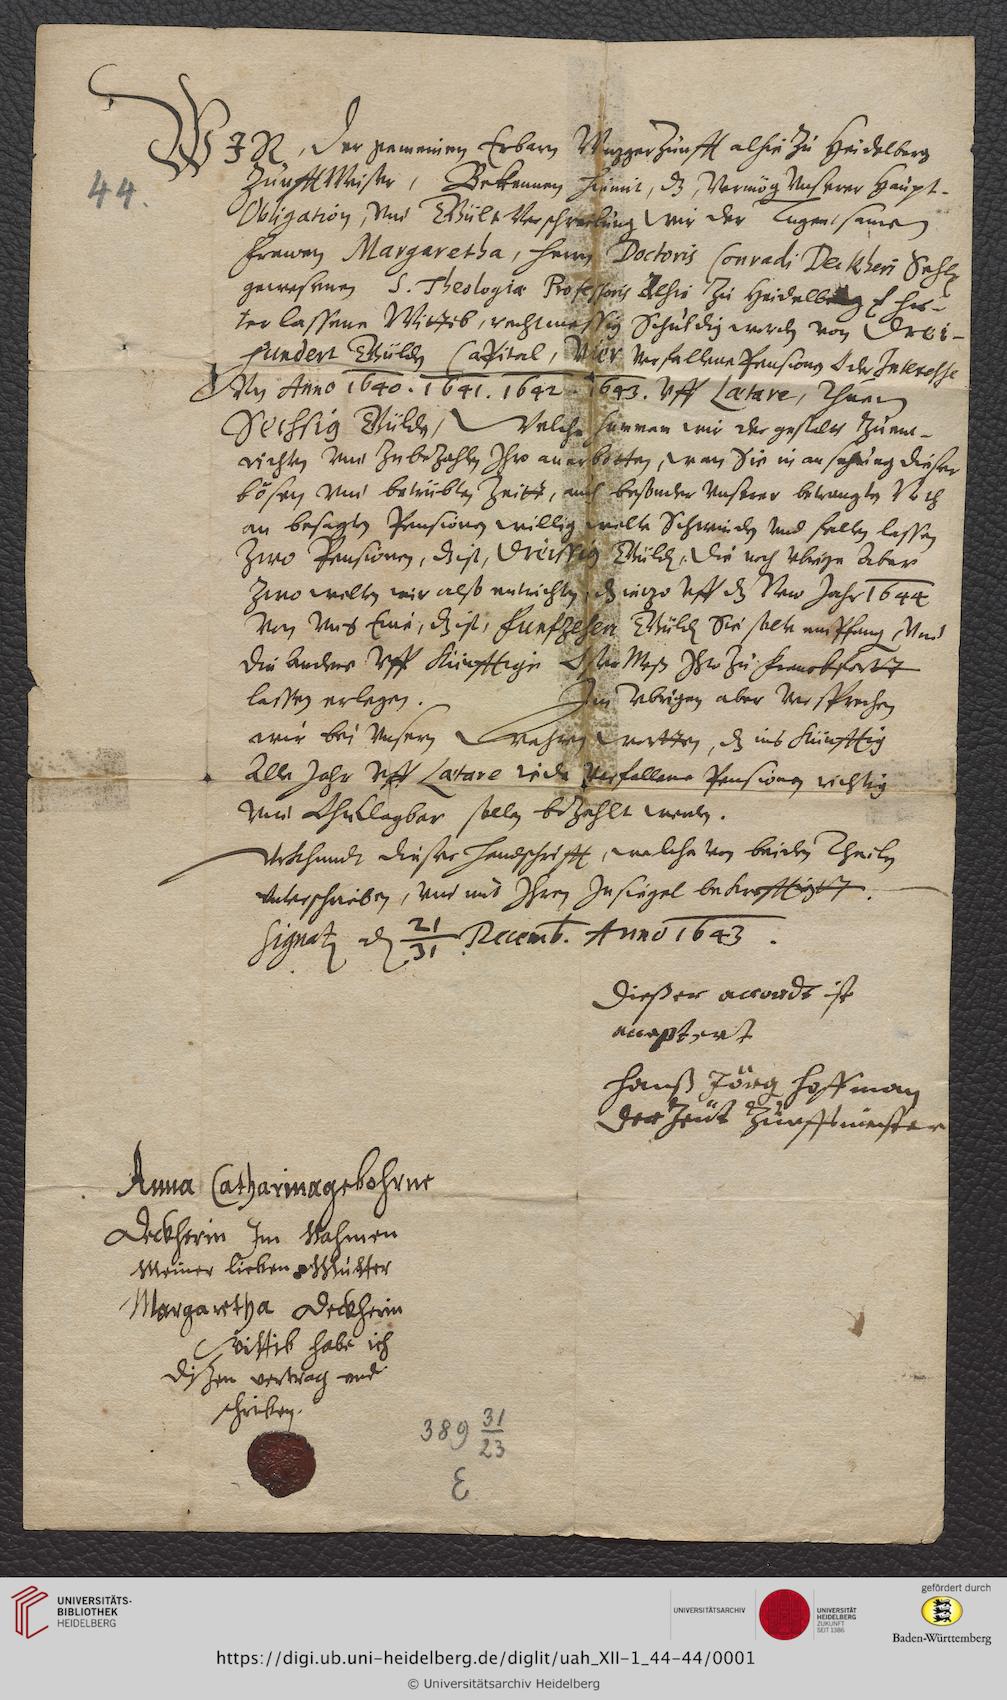 WIR, Der gemeinen Erbarn Meggerzunfft alhie zu Heidelberg
44.
Zunfft Meister, Bekennen hiemit, dz, vermög unserer Haupt-
Obligation, und Gült verschreibung wir der Tugentsamen
Frawen Margaretha, Herrn Doctoris Conradi Deckheri Sehl.
gewesenen S. Theologiæ Professoris Alhie zu Heidelberg hin-
terlassene Wittib, rechtmessig Schuldig worden von Drei-
hundert Gülden Capital, Vier verfallene Pensionen oder Interesse
Von Anno 1640. 1641. 1642. 1643. uff Lætare, Thuen
Sechssig Gülden, Welche Summen wir der gestalt zu ent-
richten und zu bezahlen Ihro anerbotten, wan Sie in ansehung dieser
bösen und betrübten Zeitt, auch besonder unserer betrangten
an besagten Pensionen willig wolte Schwinden und fallen lassen
Zwo Pensionen, dz ist, Dreissig Gülden. Die noch ubrige aber
Zwo wolten wir alß entrichten, dz iezo uff dz New Jahr 1644
Von uns Eine, dz ist, Funfzehen Gülden Sie solte empfang, und
die Andere uff künfftige OsterMeß Ihro zu Franckfortt
lassen erlegen. Im ubrigen aber versprechen
wir bei unsern wahren wortten, dz ins künfftig
Alle Jahr uff Lætare iede verfallene Pensionen richtig
und Ohnklagbar sollen bezahlt werden.
Urkhundt dieser Handschrifft, welche von beiden Theilen
underschrieben, und mit Ihren Insiegel bekrefftigtt.
Signat. d 21/31 Decemb. Anno 1643.
Dießer accordt ist
acceptert
Hanß Jörg Hoffman
der Zeit Zunfftmeister
Anna Catharina gebohrne
Deckherin Im Nahmen
Meiner lieben Mutter
Margaretha Deckherin
Wittib habe ich
dißen vertrag und
schrieben.
389 31/23
E
UNIVERSITÄTS-
BIBLIOTHEK
HEIDELBERG
UNIVERSITÄTSARCHIV
UNIVERSITÄT
HEIDELBERG
ZUKUNFT
SEIT 1386
gefördert durch
Baden-Württemberg
https://digi.ub.uni-heidelberg.de/diglit/uah_XII-1_44-44/0001
© Universitätsarchiv Heidelberg